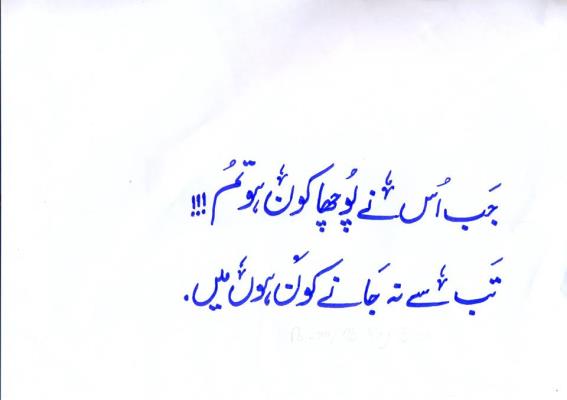 جَب اُس نے پُوچھا کون ہو تُم !!!
تَب سے نہ جَانے کون ہوں میں .